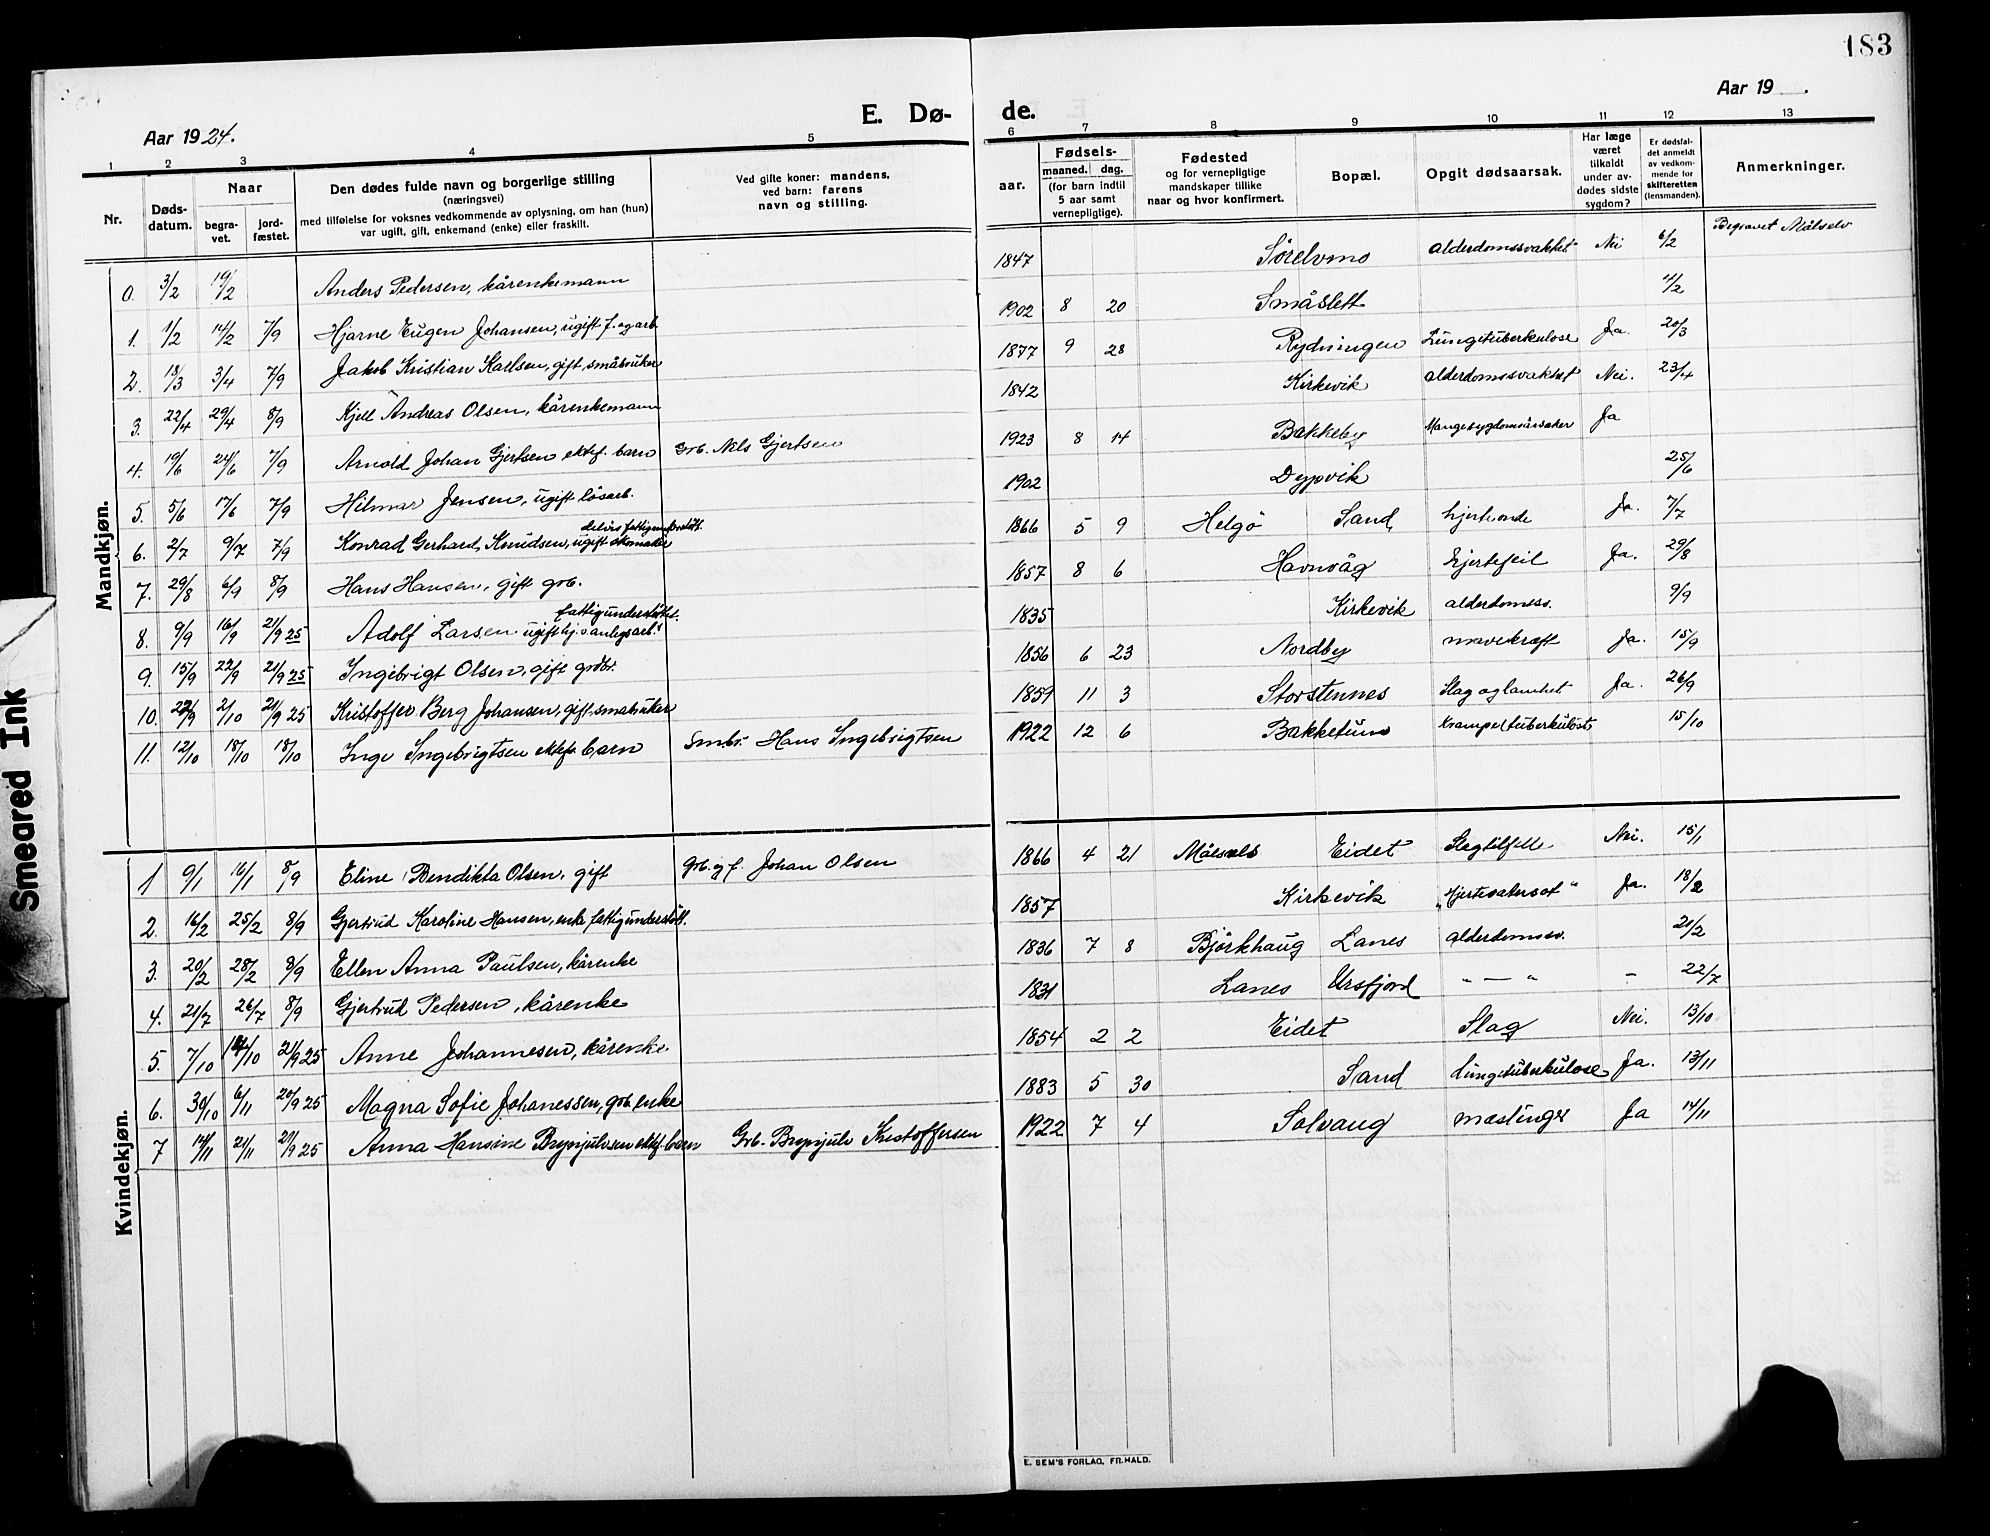 183
Aar 1924.
E. Dø-
de.
Aar 19 .
1 2 3 4 5 6 7 8 9 10 11 12 13
Nr.
Døds-
datum.
Naar
begra-
vet.
jord-
fæstet.
Den dødes fulde navn og borgerlige stilling
(næringsvei)
med tilføielse for voksnes vedkommende av oplysning, om han (hun)
var ugift, gift, enkemand (enke) eller fraskilt.
Ved gifte koner: mandens.
ved barn: farens
navn og stilling.
aar.
Fødsels-
maaned. dag.
(for barn indtil
5 aar samt
vernepligtige).
Fødested
og for vernepligtige
mandskaper tillike
naar og hvor konfirmert.
Bopæl.
Opgit dødsaarsak.
Har læge
været
tilkaldt
under av-
dødes sidste
sygdom?
Er dødsfal-
det anmeldt
av vedkom-
mende for
skifteretten
(lensmanden).
Anmerkninger.
Mandkjøn.
0. 3/2 19/2 Anders Pedersen, kårenkemann 1847 Sørelvmo alderdomssvakhet Nei 6/2 Begravet Målselv
1. 1/2 14/2 7/9 Hjarne Eugen Johansen, ugift f. og arb. 1902 8 20 Småslett 4/2
2. 18/3 3/4 7/9 Jakob Kristian Kallsen, gift, småbruker 1877 9 28 Rydningen Lungetuberkulose Ja. 20/3
3. 22/4 29/4 8/9 Kjell Andreas Olsen, kårenkemann 1842 Kirkevik alderdomssvakhet Nei. 23/4
4. 19/6 24/6 7/9 Arnold Johan Gjertsen ektef. barn Grb. Nils Gjertsen 1923 8 14 Bakkeby Ja
5. 5/6 17/6 7/9 Hilmar Jensen, ugift løsarb. 1902 Dypvik 25/6
6. 2/7 9/7 7/9 Konrad Gerhard Knudsen, ugift skomaker delvis fattigunderstøt. 1866 5 9 Helgö Sand hjerteonde Ja. 7/7
7. 29/8 6/9 8/9 Hans Hansen, gift grb. 1857 8 6 Havnvåg hjertefeil Ja. 29/8
8. 9/9 16/9 21/9 25 Adolf Larsen ugift fattigunderstøttet. 1835 Kirkevik alderdomss. 9/9
9. 15/9 22/9 21/9 25 Ingebrigt Olsen, gift grdbr. 1856 6 23 Nordby mavekræft Ja. 15/9
10. 22/9 2/10 21/9 25 Kristoffer Berg Johansen, gift, småbruker 1859 11 3 Storstennes Slag og lamhet Ja. 26/9
11. 12/10 18/10 18/10 Inge Ingebrigtsen ektef. barn Smbr. Hans Ingebrigtsen 1922 12 6 Bakketun 15/10
Kvindekjøn.
1 9/1 16/1 8/9 Eline Bendikta Olsen, gift Grb. og f. Johan Olsen 1866 4 21 Målselv Eidet Slagtilfelle Nei. 15/1
2. 16/2 25/2 8/9 Gjertrud Karoline Hansen, enke fattigunderstöt. 1857 Kirkevik Ja. 18/2
3. 20/2 28/2 8/9 Ellen Anna Paulsen, kårenke 1836 7 8 Björkhaug Lanes alderdomssv. 21/2
4. 21/7 26/7 8/9 Gjertrud Pedersen, kårenke 1831 Lanes Ursfjord " — " - 22/7
5. 7/10 14/10 21/9 25 Anne Johannesen, kårenke. 1854 2 2 Eidet Slag Nei. 13/10
6. 30/10 6/11 20/9 25 Magna Sofie Johanessen, grb. enke 1883 5 30 Sand Lungetuberkulose Ja. 13/11
7 14/11 21/11 21/9 25 Anna Hansine Brynjulvsen ektef. barn Grb. Brynjulv Kristoffersen 1922 7 4 Solvang mæslinger Ja 14/11
E. SEM'S FORLAG, FR.HALD.
Smeared Ink